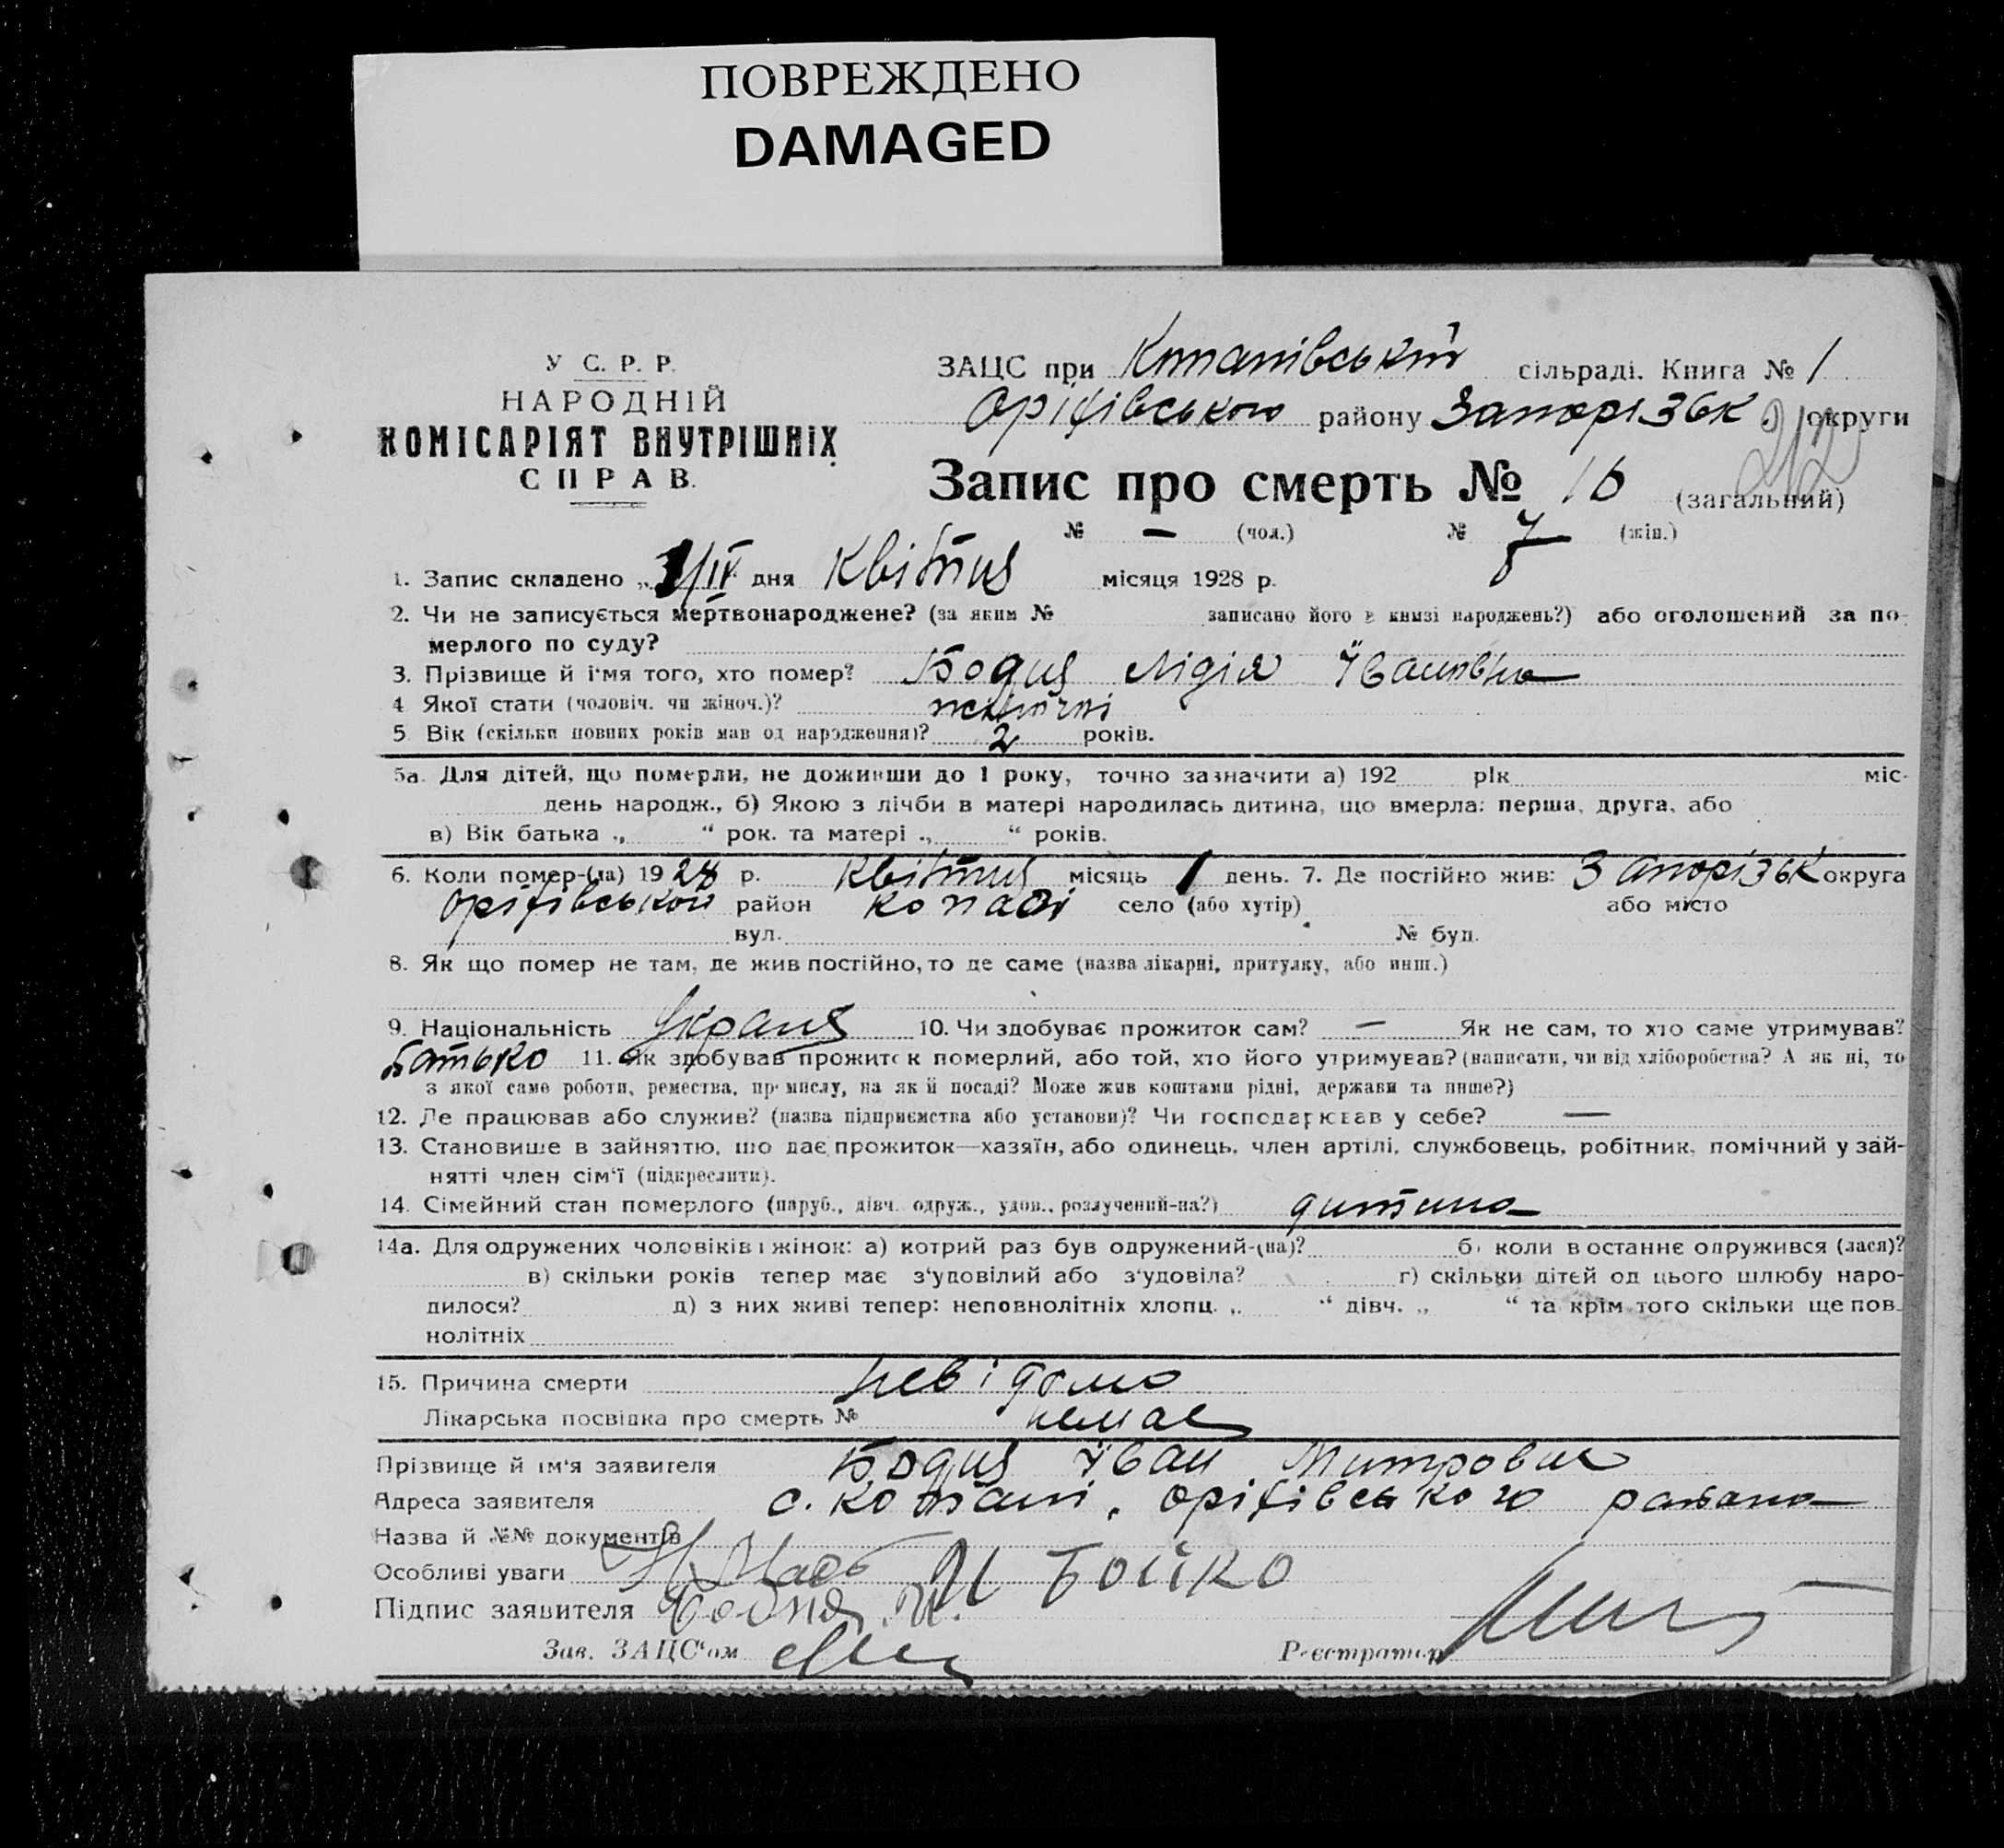 ПОВРЕЖДЕНО
DAMAGED
У С. Р. Р.
НАРОДНІЙ
КОМІСАРІЯТ ВНУТРІШНІХ
СПРАВ.
ЗАЦС при Копанівській сільраді. Книга № 1
Оріхівського району Запорізьк округи
212
Запис про смерть № 16 (загальний)
№ — (чол.) № 7 (жін.)
1. Запис складено „ /IV дня Квітня місяця 1928 р.
2. Чи не записується мертвонароджене? (за яким № записано його в книзі народжень?) або оголошений за по-
мерлого по суду?
3. Прізвище й ім'я того, хто помер? Бодня Лідія Іванівна
4. Якої стати (чоловіч. чи жіноч.)?
5. Вік (скільки повних років мав од народження)? 2 років.
5а. Для дітей, що померли, не доживши до 1 року, точно зазначити а) 192 рік міс-
день народж., б) Якою з лічби в матері народилась дитина, що вмерла: перша, друга, або
в) Вік батька „ “ рок. та матері „ “ років.
6. Коли помер-(ла) 1928 р. Квітня місяць 1 день. 7. Де постійно жив: Запорізьк округа
Оріхівського район Копані село (або хутір) або місто
вул. № буд.
8. Як що помер не там, де жив постійно, то де саме (назва лікарні, притулку, або инш.)
9. Національність 10. Чи здобуває прожиток сам? — Як не сам, то хто саме утримував?
батько 11. Як здобував прожиток померлий, або той, хто його утримував? (написати, чи від хліборобства? А як ні, то
з якої саме роботи, ремества, промислу, на якій посаді? Може жив коштами рідні, держави та инше?)
12. Де працював або служив? (назва підприємства або установи)? Чи господарював у себе? —
13. Становище в зайняттю, що дає прожиток—хазяїн, або одинець, член артілі, службовець, робітник, помічний у зай-
нятті член сім'ї (підкреслити).
14. Сімейний стан померлого (паруб., дівч. одруж., удов., розлучений-на?) дитина
14а. Для одружених чоловіків і жінок: а) котрий раз був одружений-(на)? б) коли в останнє одружився (лася)?
в) скільки років тепер має з'удовілий або з'удовіла? г) скільки дітей од цього шлюбу наро-
дилося? д) з них живі тепер: неповнолітніх хлопц. „ “ дівч. „ “ та крім того скільки ще пов.
нолітніх
15. Причина смерти невідомо
Лікарська посвідка про смерть № немає
Прізвище й ім'я заявителя Бодня Іван Митрович
Адреса заявителя с. Копані, Оріхівського района
Назва й №№ документів
Особливі уваги И Бойко
Підпис заявителя Бодня
Зав. ЗАЦС'ом Реєстратор